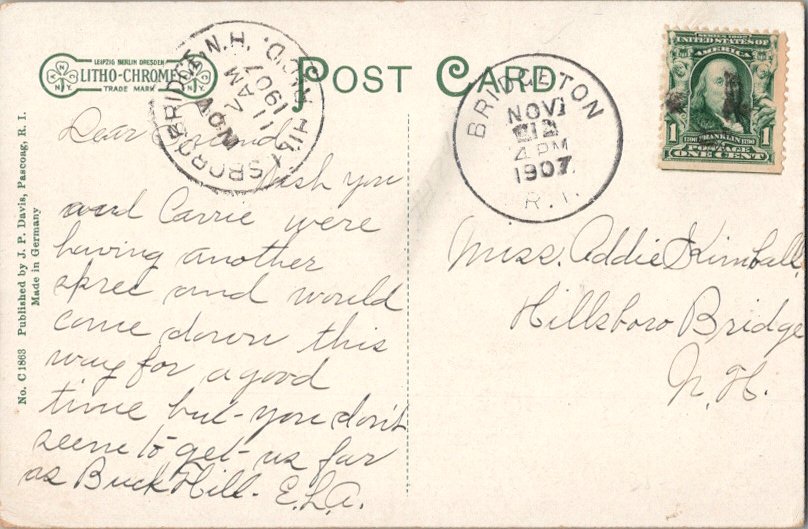 LEIPZIG BERLIN DRESDEN
LITHO-CHROME
TRADE MARK
N.Y.
POST CARD
HILLSBORO BRIDGE, N.H.
NOV
11 AM
1907
REC'D.
BRIDGETON
NOV
12
4 PM
1907
R.I.
SERIES 1902
UNITED STATES OF
AMERICA
1 FRANKLIN 1
POSTAGE
ONE CENT
No. C 1863 Published by J. P. Davis, Pascoag, R. I.
Made in Germany
Dear Friend
Wish you
and Carrie were
having another
spree and would
come down this
way for a good
time but you don't
seem to get us far
as Buck Hill - E.L.A.
Miss. Addie Kimball,
Hillsboro Bridge
N. H.